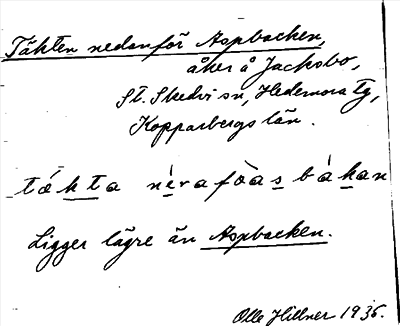 Täkten nedanför Aspbacken,
åker å Jacksbo,
St. Skedvi sn, Hedemora tg,
Kopparbergs län.
tákta nèrafòas bákan
Ligger lägre än Aspbacken.
Olle Hillner 1935.